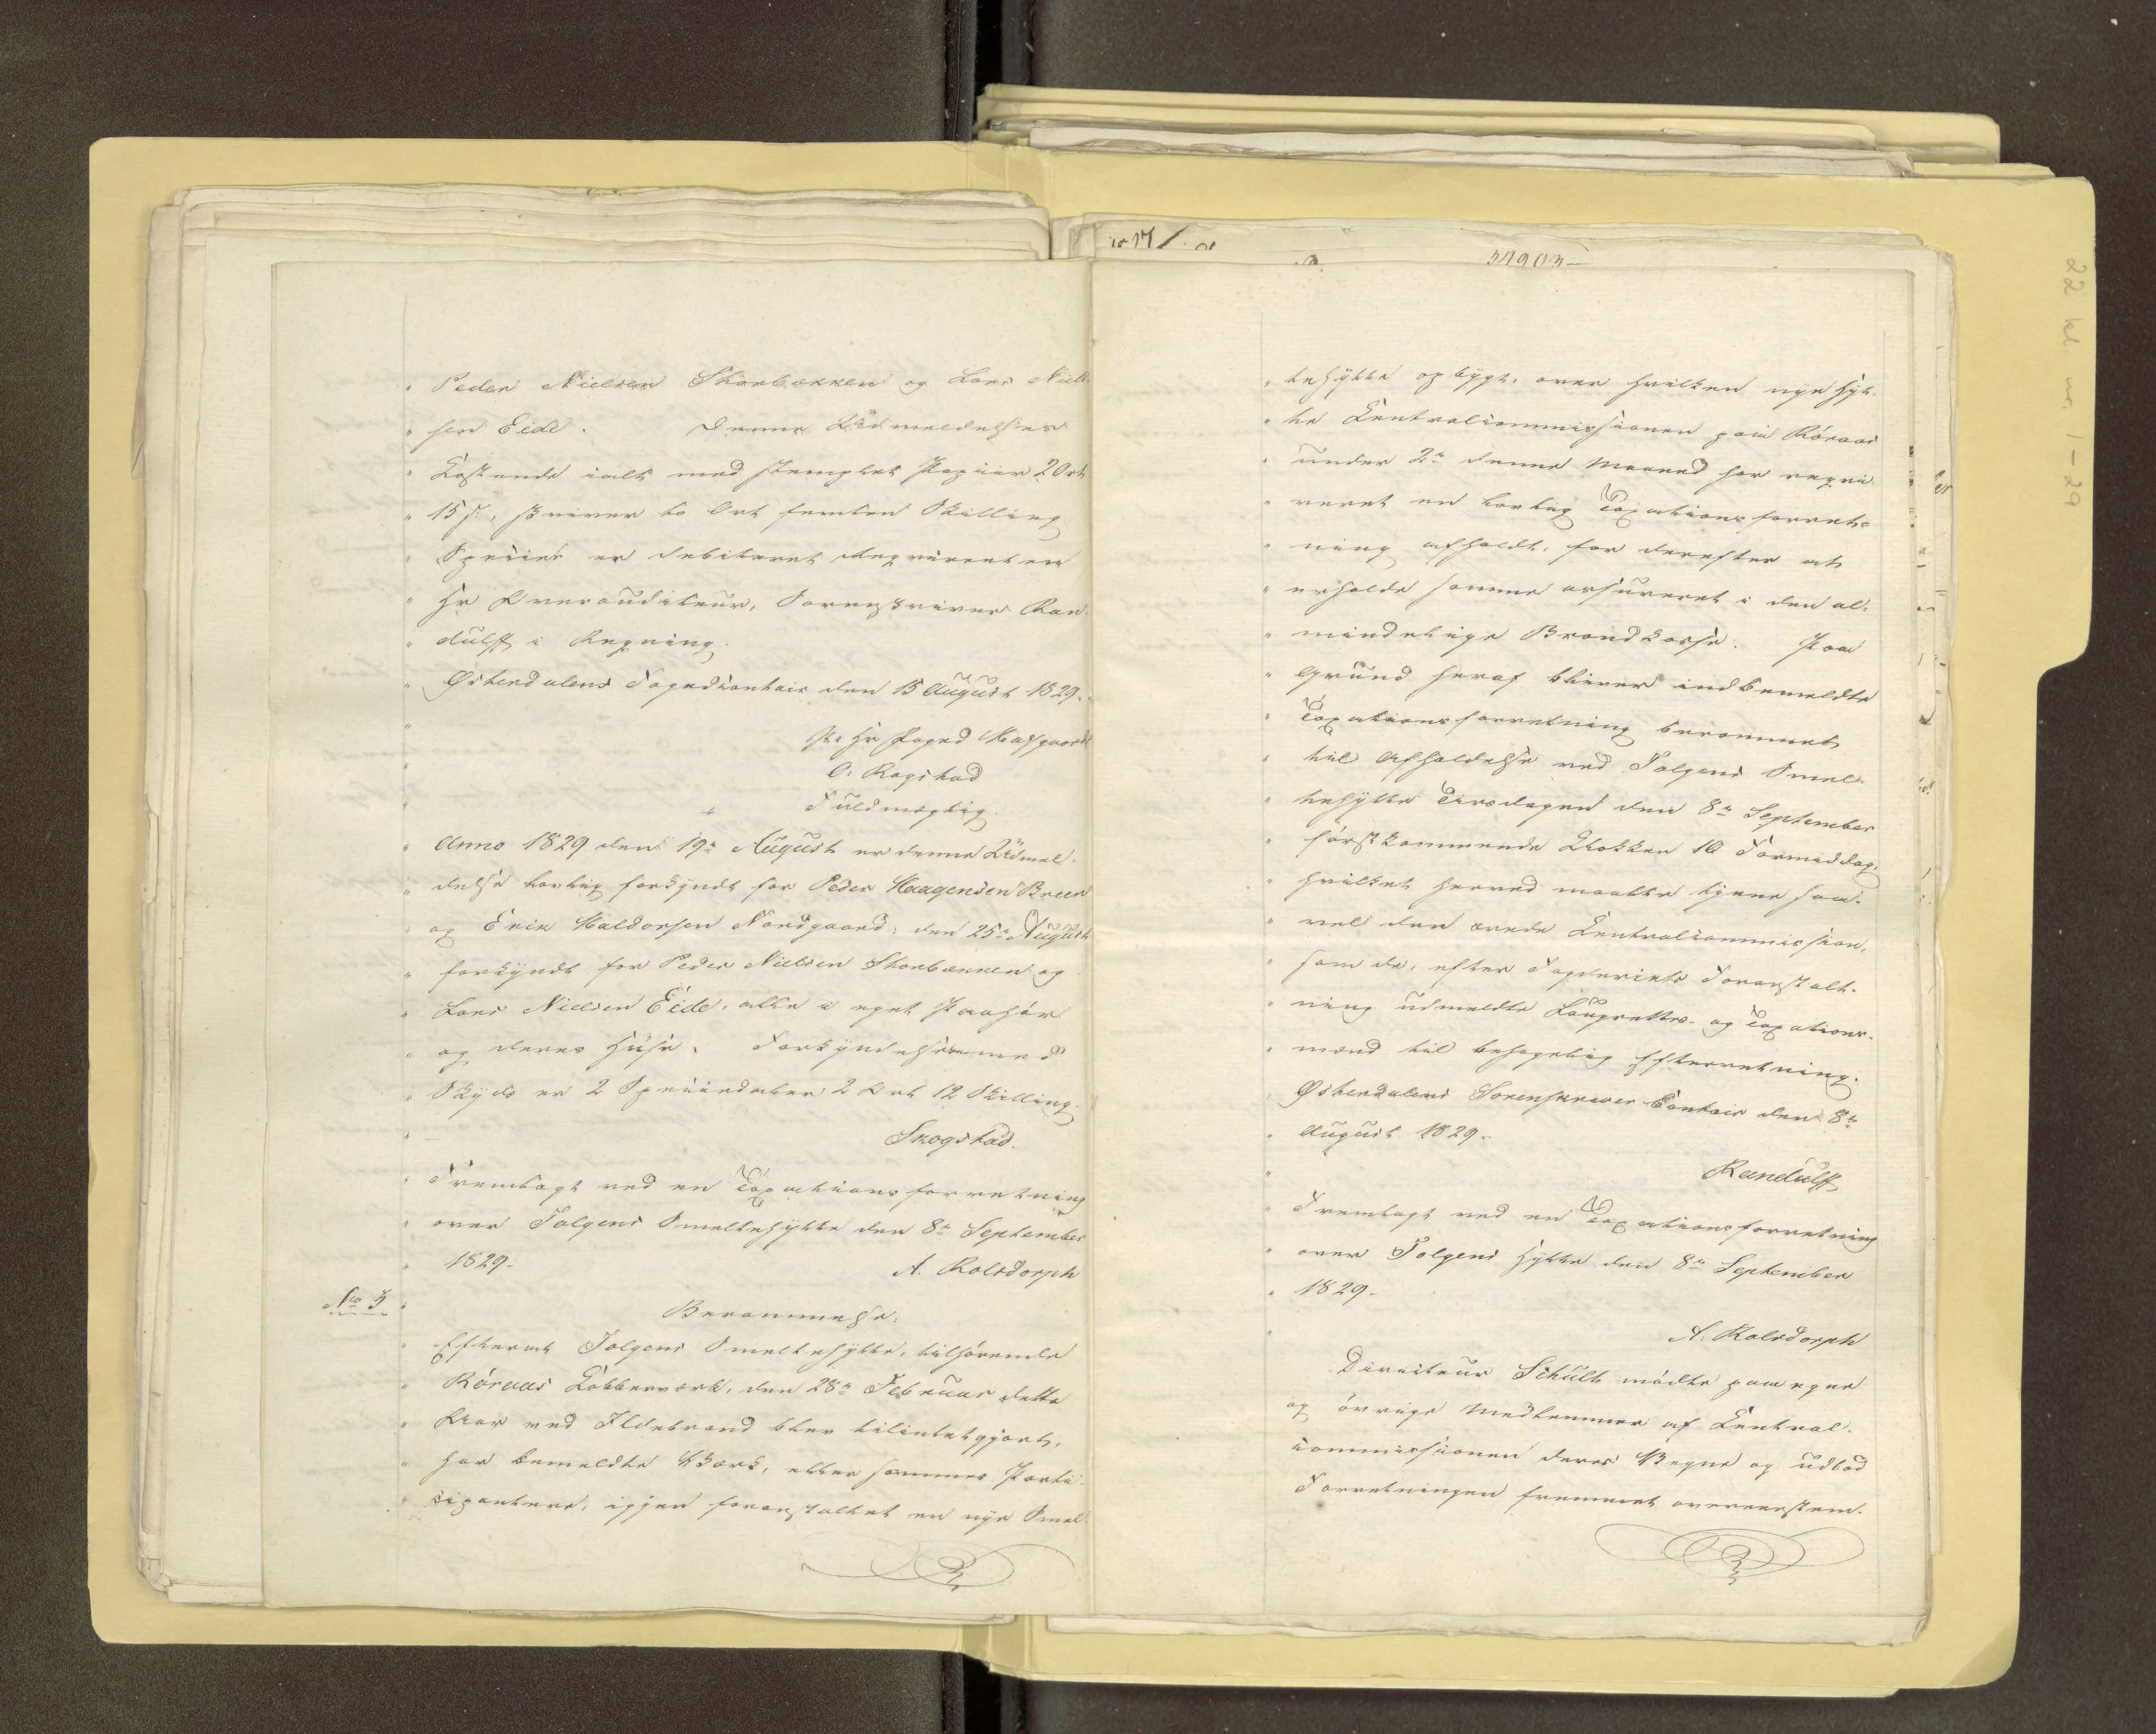 " Peder Nielsen Skorbækken og Lars Niel-
" sen Eide. Denne Udmeldelses
" Kostende ialt med stemplet Papiir 2 Ort
" 15 s:, skriver to Ort femten Skilling
" Species er debiteret Reqvirenten
" Hr Overauditeur, Sorenskriver Ran-
" dulff i Regning.
" Østerdalens Fogedcontoir den 15 August 1829.
" For Hr Foged
" O: Rogstad
" Fuldmægtig.
" Anno 1829 den 19de August er denne Udmel-
" delse lovlig forkyndt for Peder Haagensen Breen
" og Erik Haldorsen Nordgaard, den 25de August
" forkyndt for Peder Nielsen Skorbækken og
" Lars Nielsen Eide, alle i eget Paahør
" og deres Huse. Forkyndelsen med
" Skyds er 2 Speciedaler 2 Ort 12 Skilling.
" Skogstad.
" Fremlagt ved en Taxationsforretning
" over Tolgens Smeltehytte den 8de September
" 1829. A. Rolsdorph
No 3 " Berammelse.
" Efterat Tolgens Smeltehytte, tilhørende
" Røraas Kobberværk, den 28de Februar dette
" Aar ved Ildebrand blev tilintetgjort,
" har bemeldte Værk, eller sammes Parti-
" cipantere, igjen foranstaltet en nye Smel-
34903-
" tehytte opbygt, over hvilken nye Hyt-
" te Centralcommissionen paa Røraas
" under 2de denne Maaned har reqvi-
" reret en lovlig Taxationsforret-
" ning afholdt, for derefter at
" erholde samme assureret i den al-
" mindelige Brandkasse. Paa
" Grund heraf bliver indbemeldte
" Taxationsforretning berammet
" til Afholdelse ved Tolgens Smel-
" tehytte Tirsdagen den 8de September
" førstkommende Klokken 10 Formiddag,
" hvilket herved maatte tjene saa-
" vel den ærede Centralcommission,
" som de, efter Fogderiets Foranstalt-
" ning udmeldte Laugrettes- og Taxations-
" mænd til behagelig Efterretning.
" Østerdalens Sorenskriver Contoir den 8de
" August 1829.
" Randulff
" Fremlagt ved en Taxationsforretning
" over Tolgens Hytte den 8de September
" 1829.
" A. Rolsdorph
Directeur Schult mødte paa egne
og øvrige Medlemmer af Central-
commissionen deres Vegne og udbad
Forretningen fremmet overeenstem-
22 kl. nr. 1-29